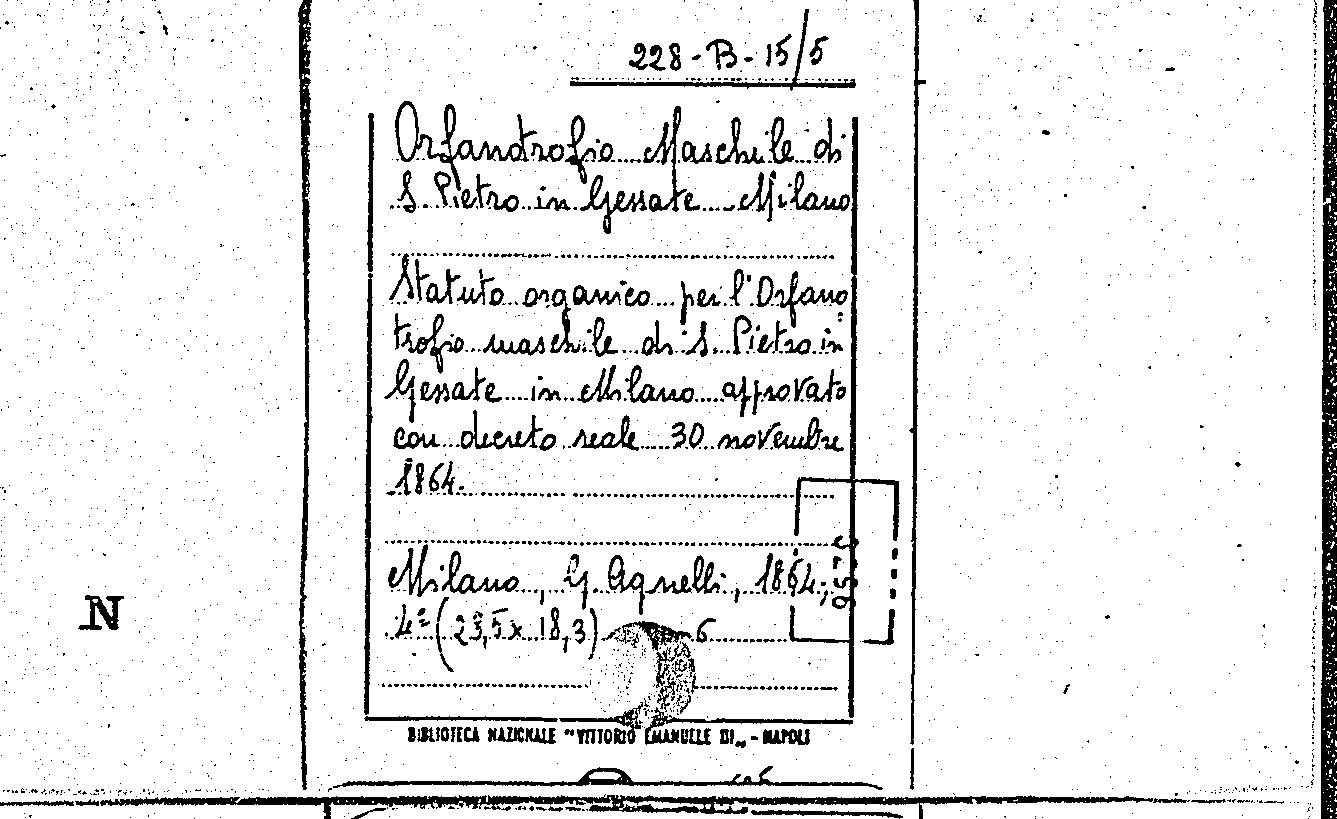 228-B-15/5
Orfanotrofio Maschile di
S. Pietro in Gessate Milano
Statuto organico per l'Orfano
trofio maschile di S. Pietro in
Gessate in Milano approvato
con decreto reale 30 novembre
1864.
Milano, G. Agnelli, 1864;
4º (23,5 x 18,3) 6
N
BIBLIOTECA NAZIONALE "VITTORIO EMANUELE III„ - NAPOLI